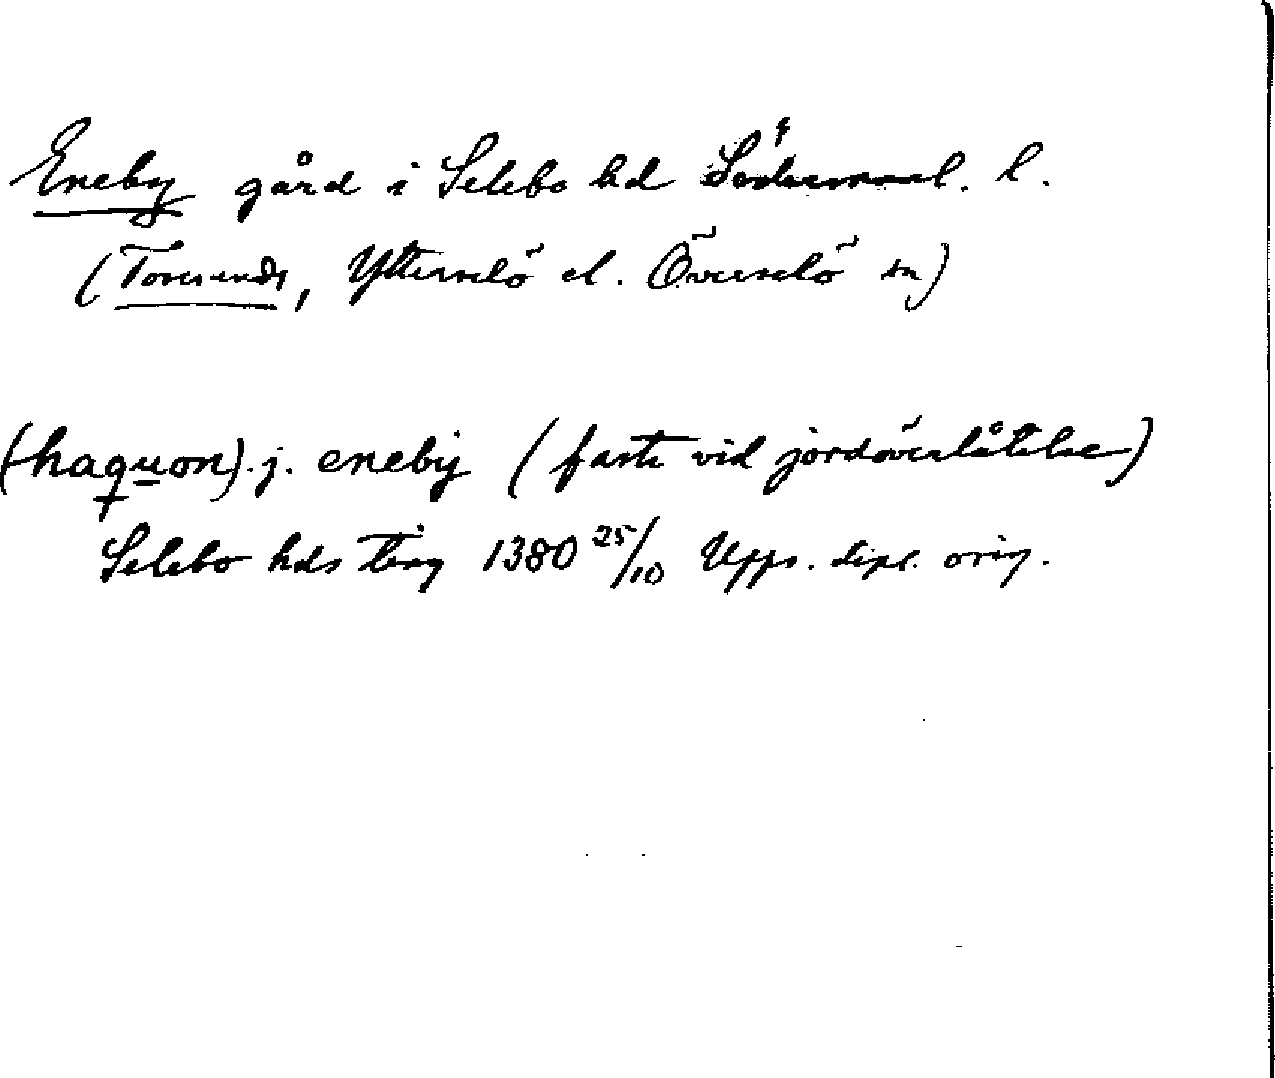 Eneby gård i Selebo hd Söderman l. l.
(Toresunds, Ytterselö el. Överselö sn)
(haquon). j. eneby (faste vid jordöverlåtelse)
Selebo hds ting 1380 25/10 Upps. dipl. orig.